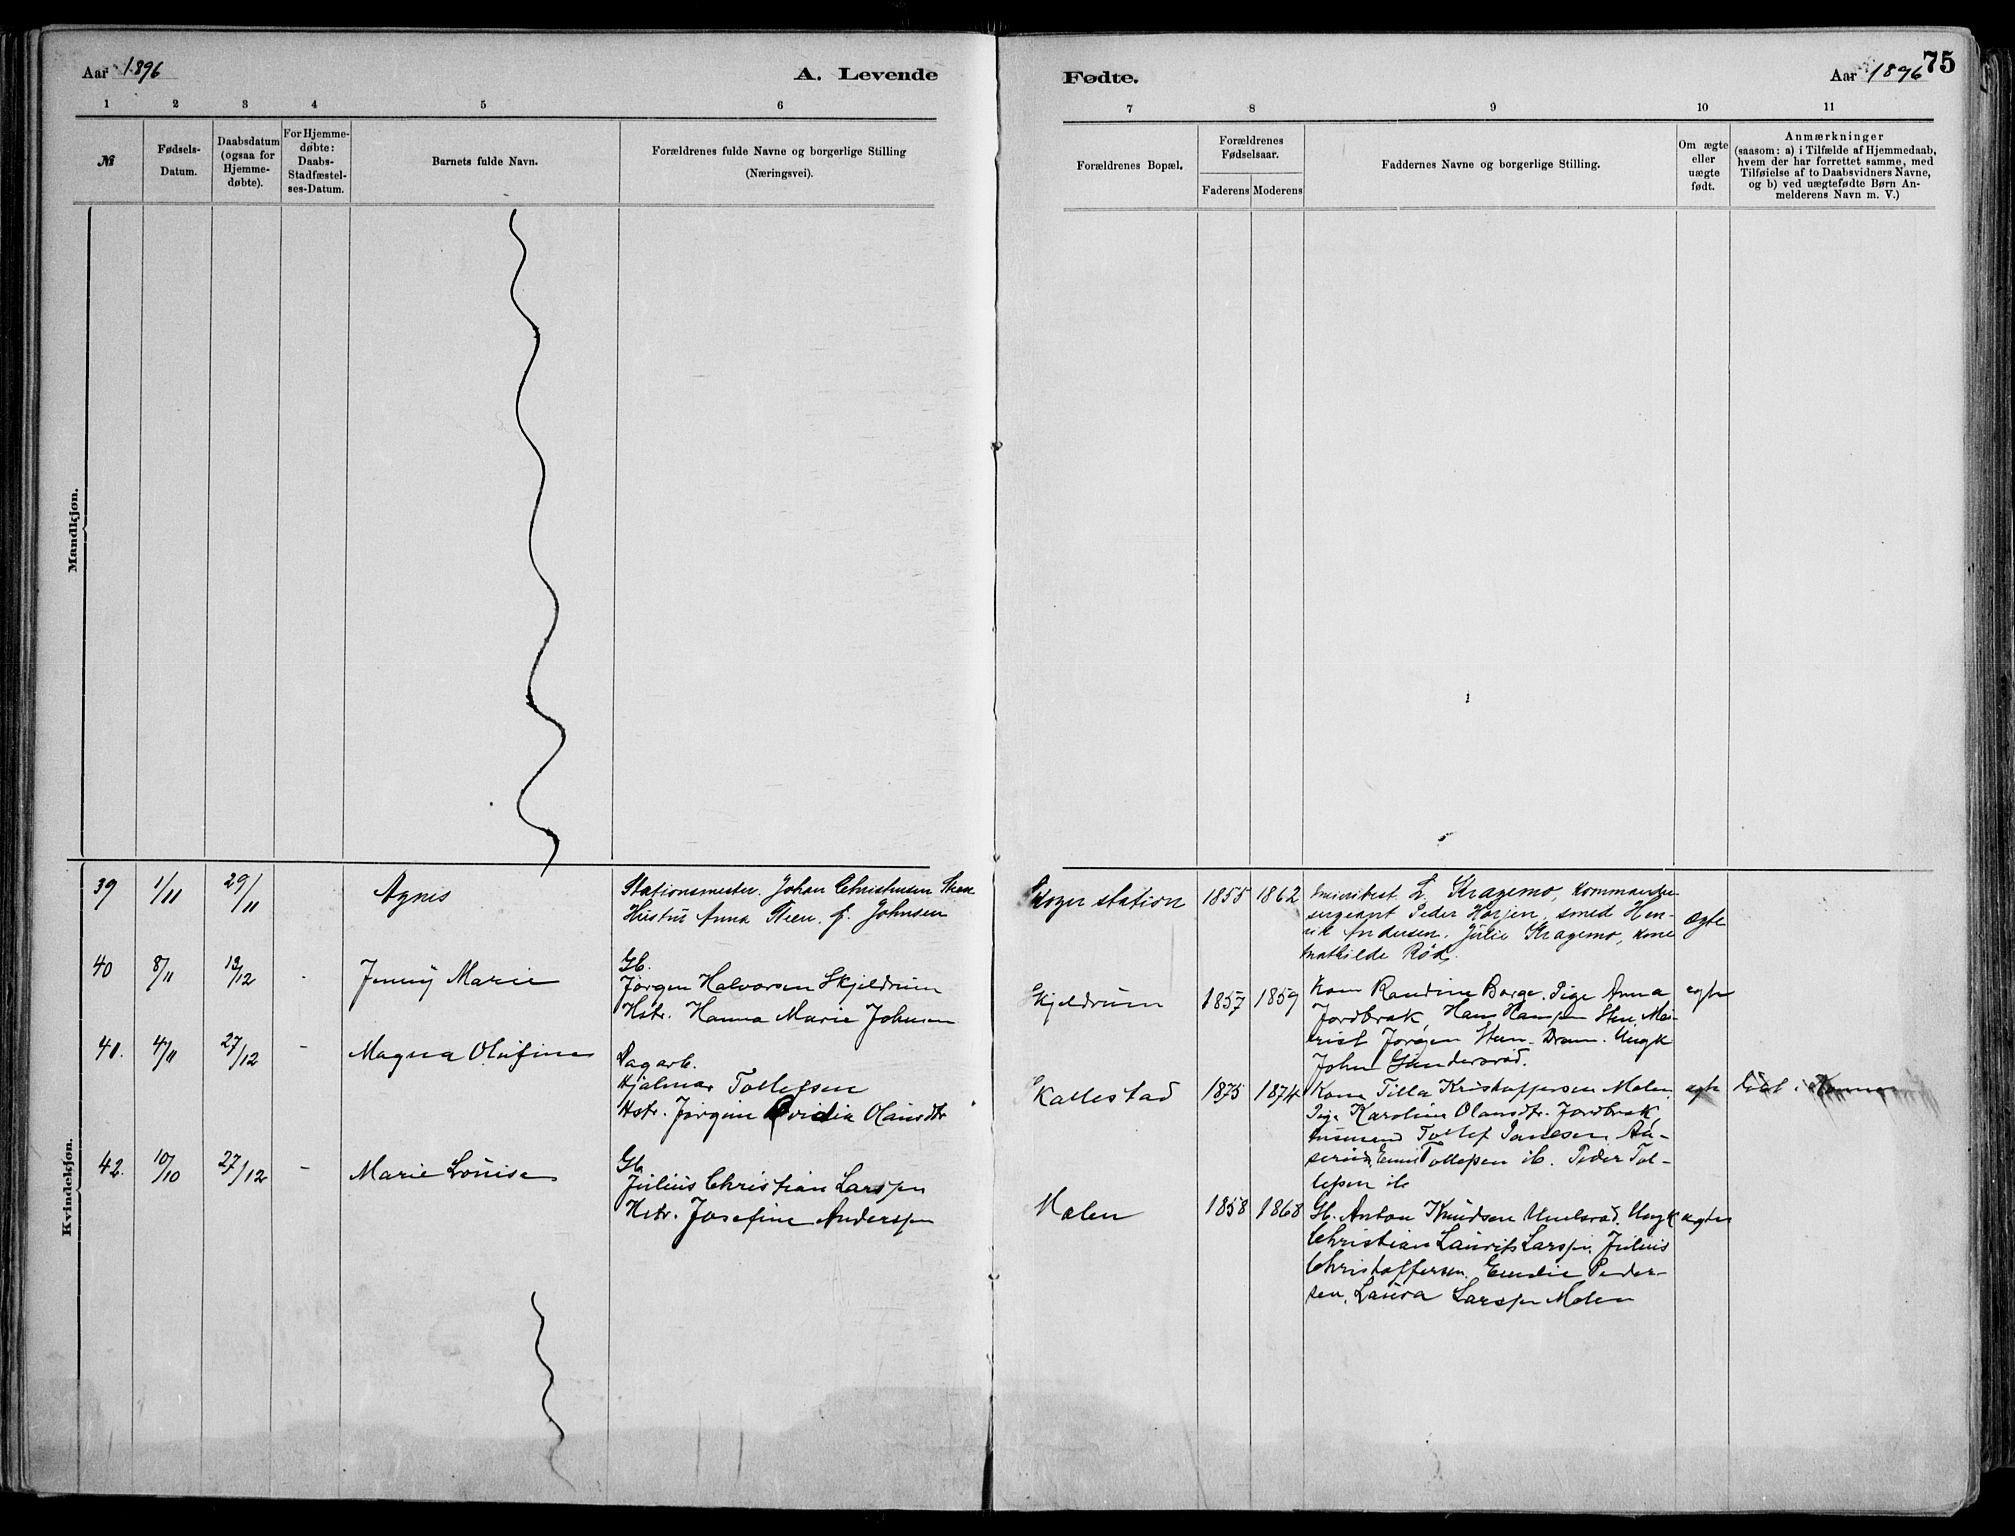 Aar 1896
A. Levende
Fødte.
Aar 1896
75
1 2 3 4 5 6
7 8 9 10 11
№
Fødsels-
Datum.
Daabsdatum
(ogsaa for
Hjemme-
døbte).
For Hjemme-
døbte:
Daabs-
Stadfæstel-
ses-Datum.
Barnets fulde Navn.
Forældrenes fulde Navne og borgerlige Stilling
(Næringsvei).
Forældrenes Bopæl.
Forældrenes
Fødselsaar.
Faderens Moderens
Faddernes Navne og borgerlige Stilling.
Om ægte
eller
uægte
født.
Anmærkninger
(saasom: a) i Tilfælde af Hjemmedaab,
hvem der har forrettet samme, med
Tilføielse af to Daabsvidners Navne,
og b) ved uægtefødte Børn An-
melderens Navn m. V.)
Mandkjøn.
Kvindekjøn.
39 1/11 29/11 Agnes
Stationsmester Johan Christensen
Hustru Anna f. Johnsen
Skoger station 1855 1862
L. Kragemo, kommander-
sergeant Peder Horjen, smed Hen-
rik Andersen, Julie Kragemo, kone
Mathilde Rød.
ægte
40 8/11 13/12 - Jenny Marie
Gb.
Jørgen Halvorsen Skjeldrum
Hstr. Hanna Marie Johnsen
Skjeldrum 1857 1859
Kone Randine Borge, Pige Anna
Jordbræk, Hans Hansen
Jørgen Steen, Dram. Ungk
John Gundersrød.
egte
41. 4/11 27/12 - Magna Olufine
Dagarb.
Hjalmar Tollefsen
Hstr. Jørgine Olausdtr
Kallestad 1875 1874
Kone Tilla Kristoffersen Molen,
Pige Karoline Olausdtr. Jordbræk
Tollef
Tollefsen ib. Peder Tol-
lefsen ib
egte
42. 10/10 27/12 - Marie Louise
Gb.
Julius Christian Larssen
Hstr. Josefine Anderssen
Molen 1858 1868
Gb. Anton Knudsen Ungk
Christian Laurits Larssen, Julius
Christoffersen, Emilie Peder-
sen, Laura Larssen Molen
egte